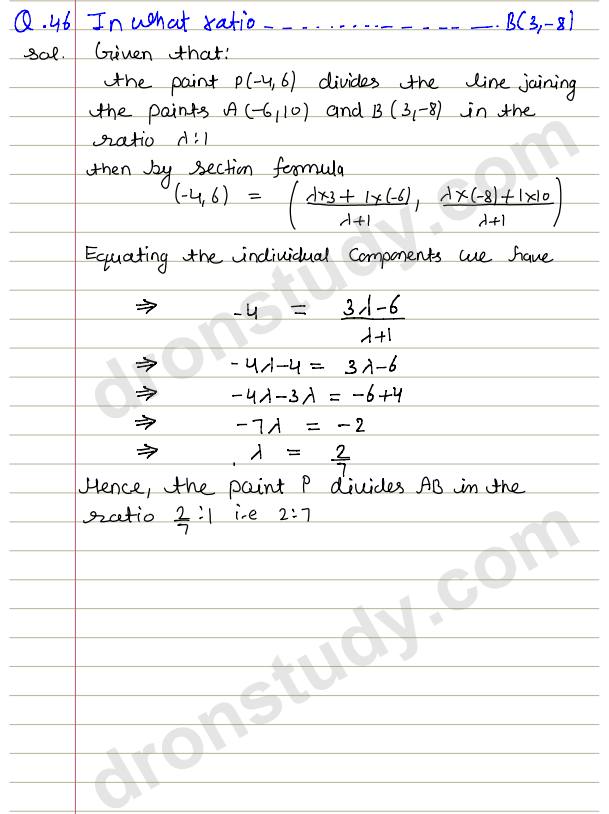 Q.46 In what ratio ------------- B(3,-8)
Sol. Given that:
the point P(-4,6) divides the line joining
the points A(-6,10) and B(3,-8) in the
ratio λ:1
then by section formula
(-4,6) = ( (λ×3+1×(-6))/(λ+1), (λ×(-8)+1×10)/(λ+1) )
Equating the individual Components we have
⇒ -4 = (3λ-6)/(λ+1)
⇒ -4λ-4 = 3λ-6
⇒ -4λ-3λ = -6+4
⇒ -7λ = -2
⇒ λ = 2/7
Hence, the point P divides AB in the
ratio 2/7:1 i.e 2:7
dronstudy.com
dronstudy.com